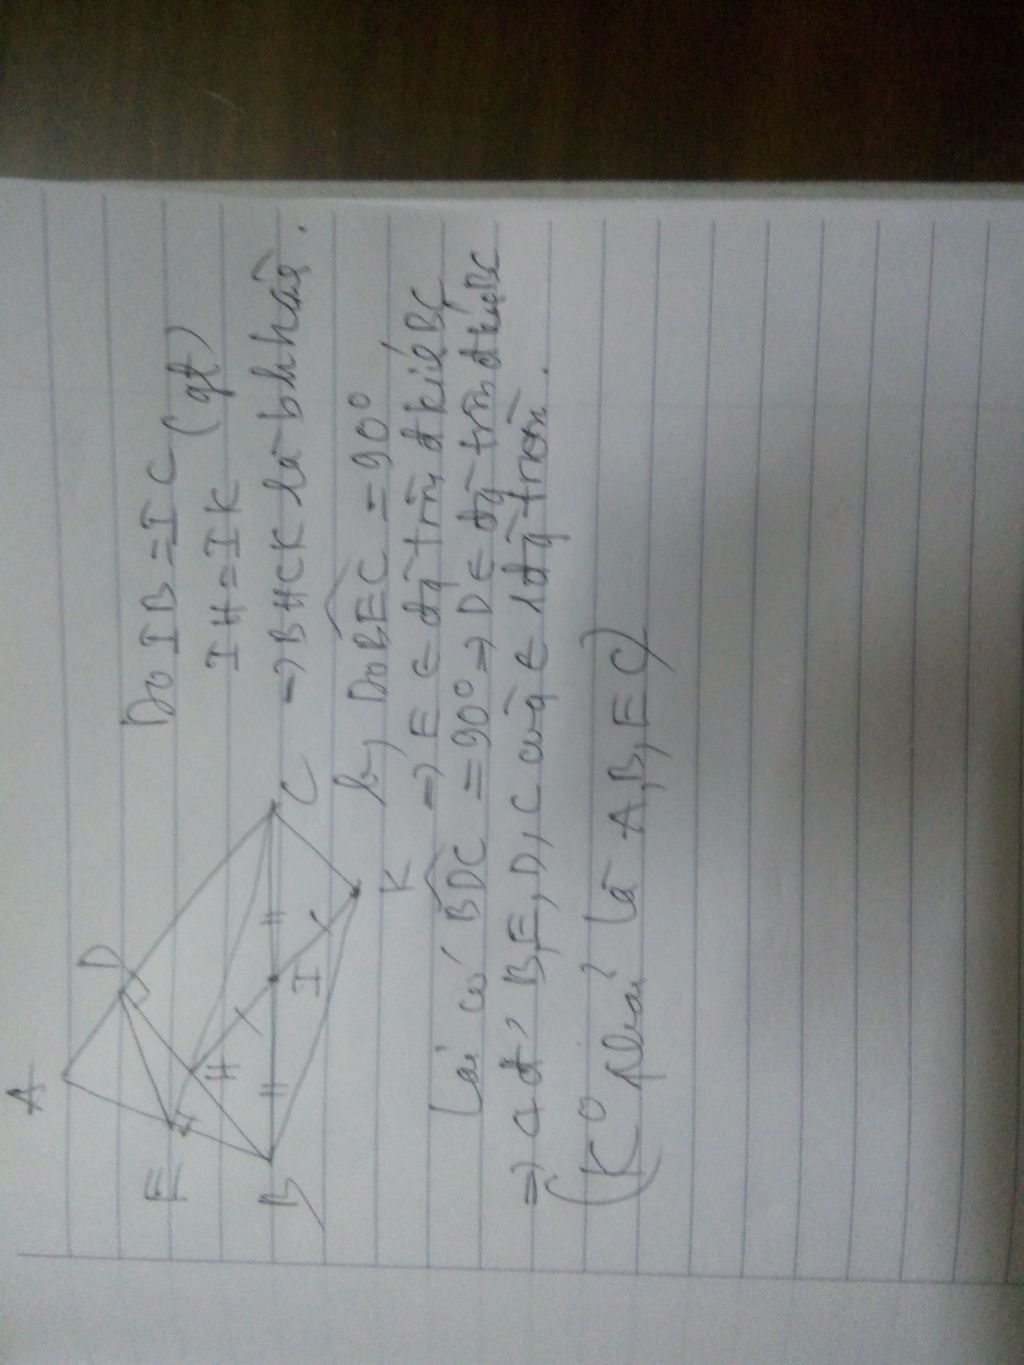 Do IB = IC (gt)
IH = IK
=> BHCK là b hhàh.
b, Do BEC = 90°
=> E ∈ đg tròn đ kiể BC
Lại có BDC = 90° => D ∈ đg tròn đ kiể BC
=> 4 đ' B, E, D, C cùng ∈ 1 đg tròn.
(K° phải là A, B, E, C)
A
D
E
H
B
I
C
K